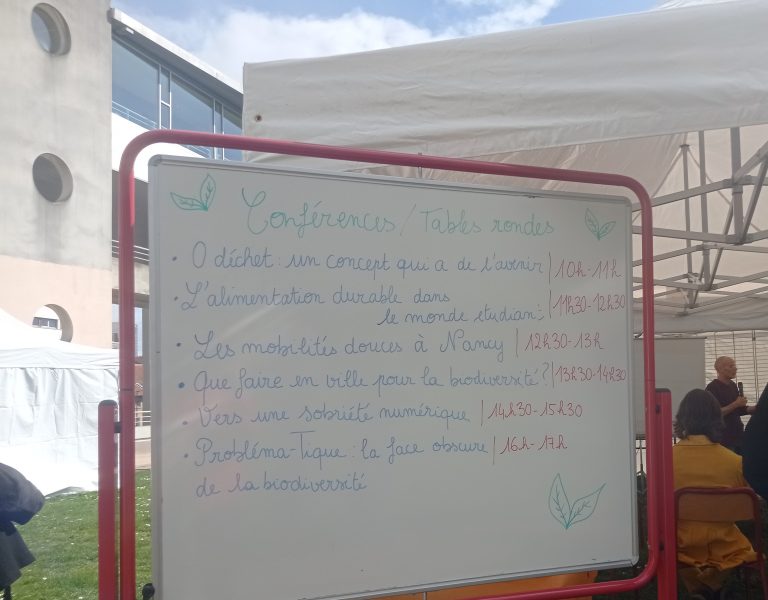 Conférences / Tables rondes
• 0 déchet : un concept qui a de l'avenir | 10h-11h
• L'alimentation durable dans
le monde étudiant | 11h30-12h30
• Les mobilités douces à Nancy | 12h30-13h
• Que faire en ville pour la biodiversité ? | 13h30-14h30
• Vers une sobriété numérique | 14h30-15h30
• Probléma-Tique : la face obscure | 16h-17h
de la biodiversité